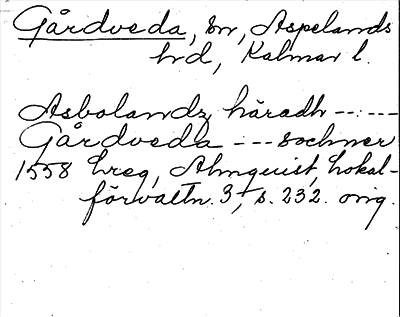 Gårdveda, sn, Aspelands
hrd, Kalmar l.
Asbolandz häradh --:--
Gårdveda --- sochner
1558 hreg, Almquist, Lokal-
förvaltn. 3, s. 232. orig.